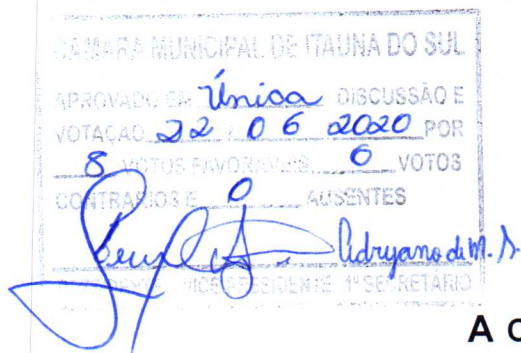 CÂMARA MUNICIPAL DE ITAUNA DO SUL
APROVADO EM Única DISCUSSÃO E
VOTAÇÃO 22 / 06 2020 POR
8 VOTOS FAVORÁVEIS 0 VOTOS
CONTRÁRIOS E 0 AUSENTES
Adryano de M. S.
VICE-PRESIDENTE 1º SECRETÁRIO
A